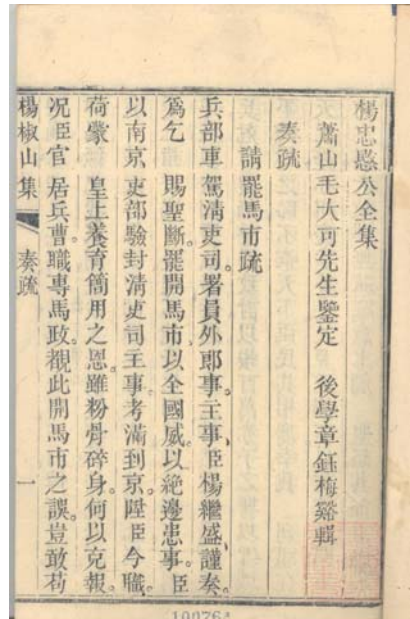 楊忠愍公全集
蕭山毛大可先生鑒定 後學章鈺梅谿輯
奏疏
請罷馬市疏
兵部車駕清吏司署員外郎事主事臣楊繼盛謹奏。
爲乞 賜聖斷。罷開馬市。以全國威。以絶邊患事。臣
以南京吏部驗封清吏司主事。考滿到京。陞臣今職。
荷蒙 皇上養育簡用之恩。雖粉骨碎身。何以克報。
况臣官 居兵曹。職專馬政。覩此開馬市之誤。豈敢苟
楊椒山集 奏疏 一
10076